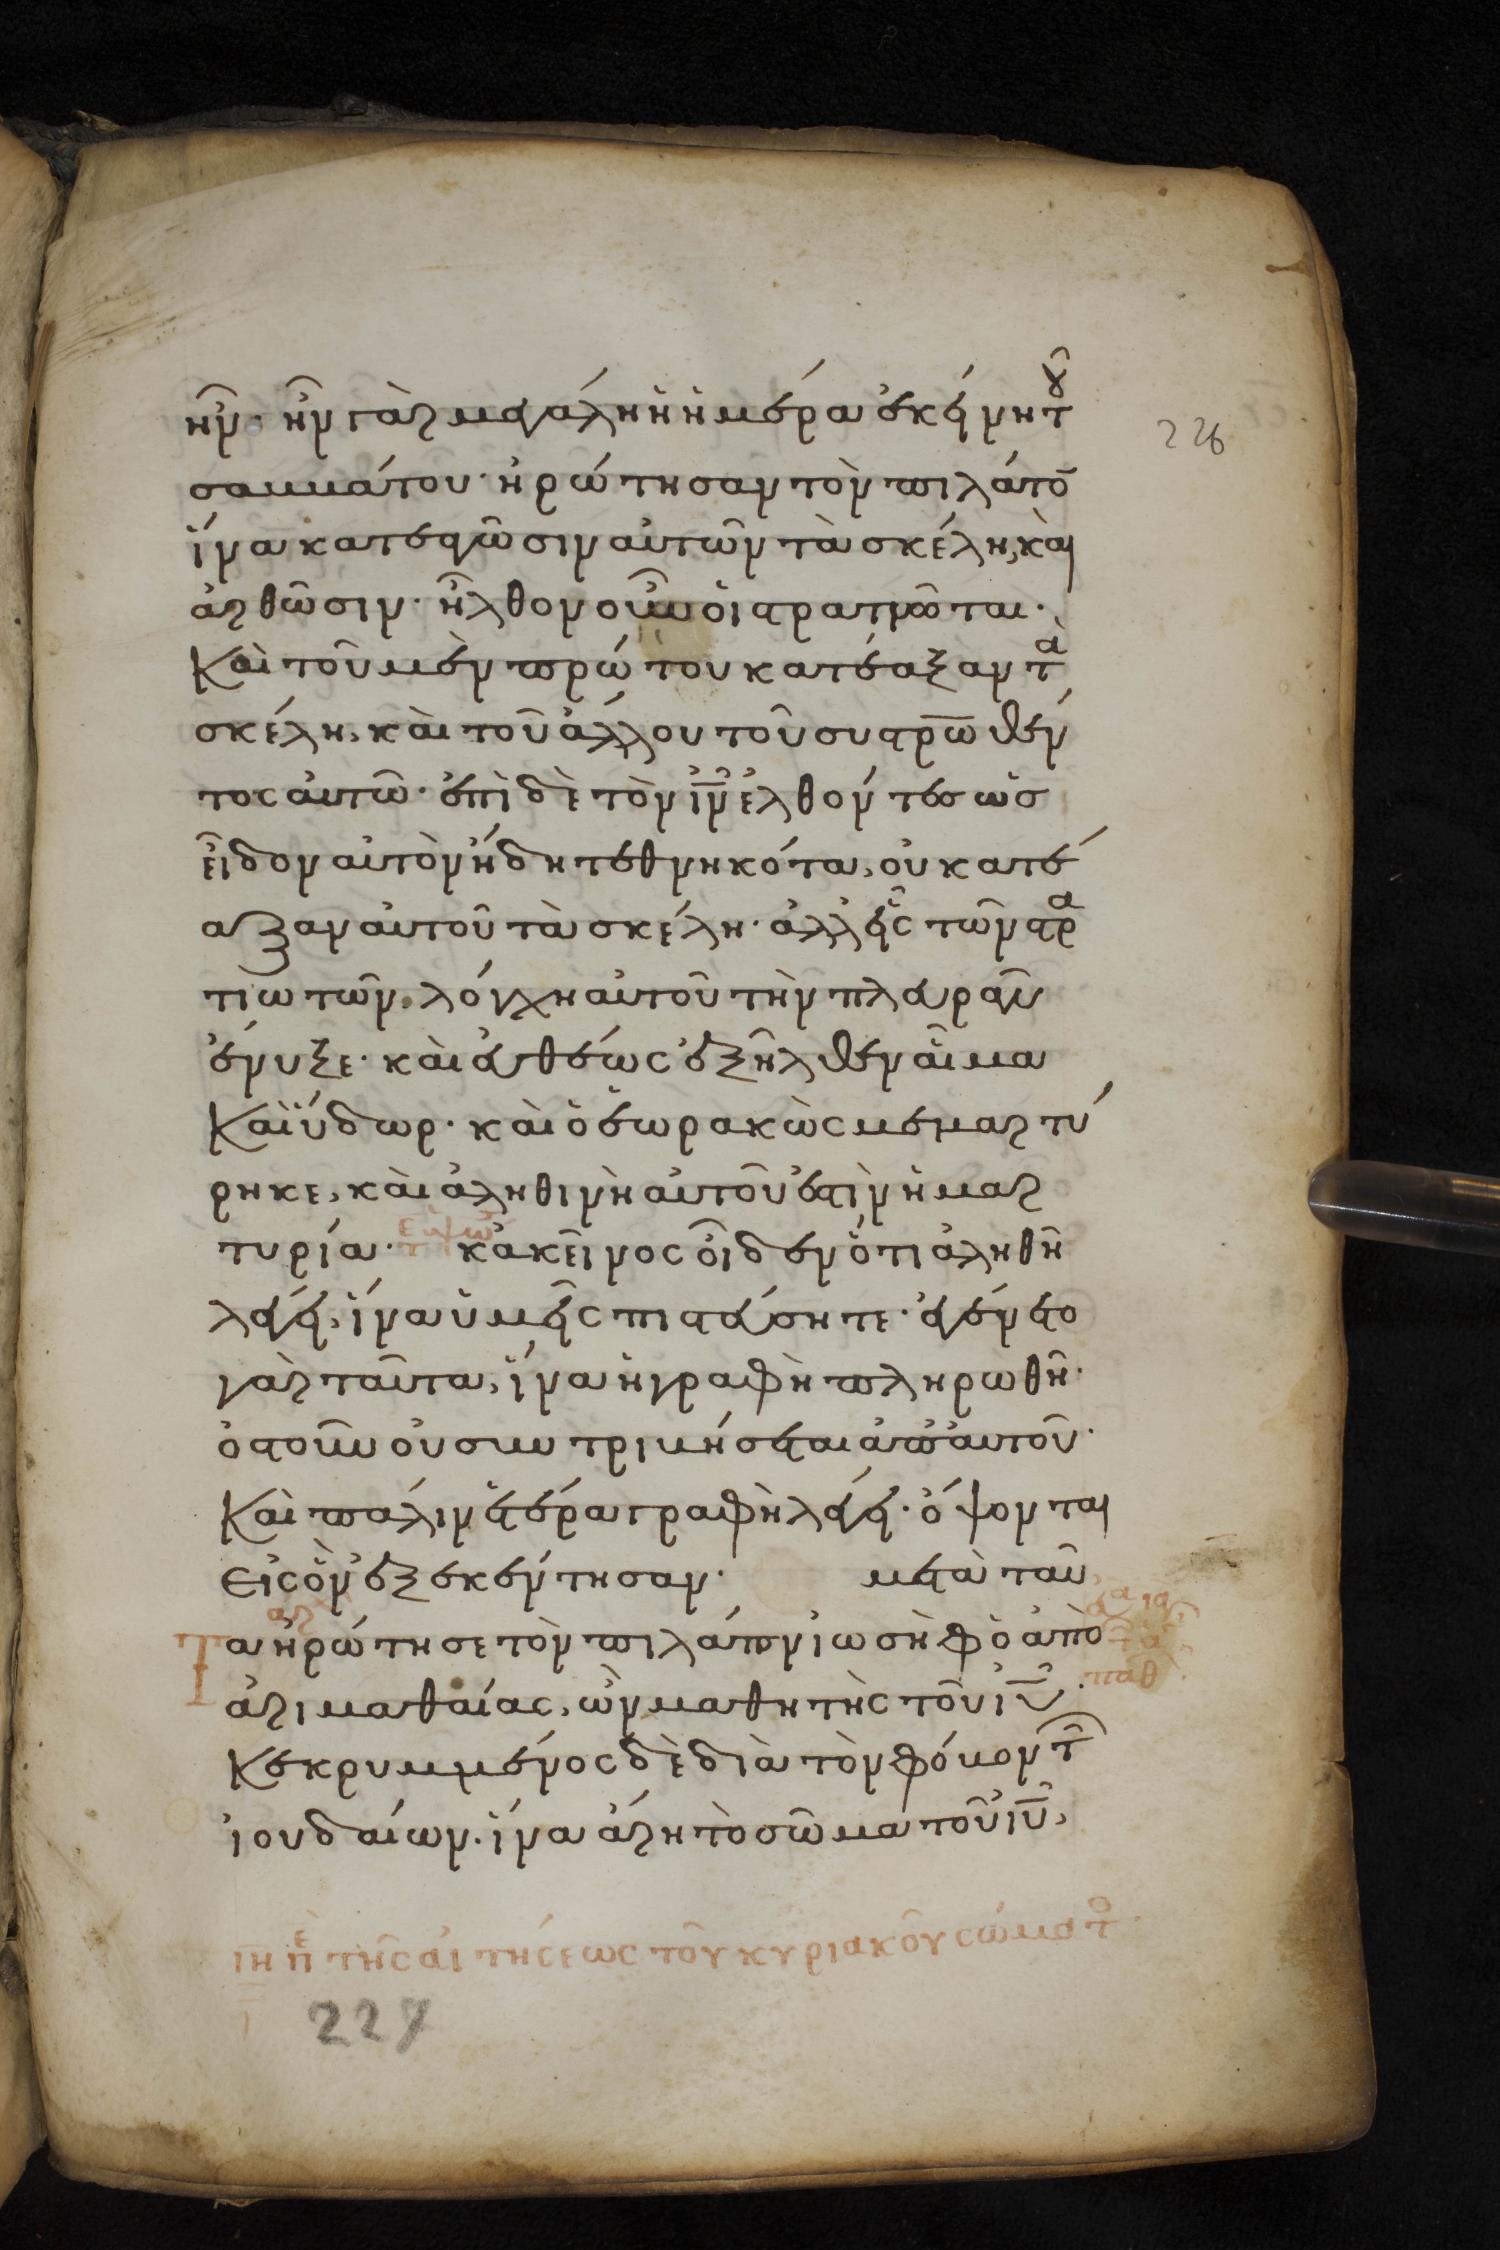 ἦν· ἦν γὰρ μεγάλη ἡ ἡμέρα ἐκείνη τοῦ
226
σαββάτου· ἠρώτησαν τὸν πιλάτο̅
ἵνα κατεαγῶσιν αὐτῶν τὰ σκέλη, καὶ
ἀρθῶσιν· ἦλθον οὖν οἱ στρατιῶται·
Καὶ τοῦ μὲν πρώτου κατέαξαν τὰ
σκέλη, καὶ τοῦ ἄλλου τοῦ συστρ̅ωθέν
τος αὐτῶ· ἐπὶ δὲ τὸν ἰ̅ν̅ ἐλθόντεσ ὡσ
εἶδον αὐτὸν ἤδη τεθνηκότα, οὐ κατέ
αξαν αὐτοῦ τὰ σκέλη· ἀλλ εἷς τῶν στρα
τιωτῶν, λόγχη αὐτοῦ τὴν πλευρὰν
ἔνυξε· καὶ εὐθέως ἐξῆλθεν αἷμα
Καὶ ὕδωρ· καὶ ὁ ἑωρακὼς μεμαρτύ
ρηκε, καὶ ἀληθινὴ αὐτοῦ ἐστὶν ἡ μαρ
τυρία· κἀκεῖνος οἶδεν ὅτι ἀληθῆ
λέγει, ἵνα ὑμεῖς πιστεύσητε· ἐγένετο
γὰρ ταῦτα, ἵνα ἡ γραφὴ πληρωθῆ·
ὀστοῦν οὐ συντριβήσεται ἀπ αὐτοῦ·
Καὶ πάλιν ἑτέρα γραφὴ λέγει· ὄψονται
εἰς ὃν ἐξεκέντησαν· μετὰ ταῦ
Τα ἠρώτησε τὸν πιλάτον ἰωσὴφ ὁ ἀπὸ
ἀριμαθαίας, ὢν μαθητὴς τοῦ ἰ̅υ̅·
Κεκρυμμένος δὲ διὰ τὸν φόβον τῶν
ἰουδαίων. ἵνα ἄρη τὸ σῶμα τοῦ ἰ̅υ̅,
ι̅η̅ πε τῆς αἰτήσεως τοῦ κυριακοῦ σώματο
227